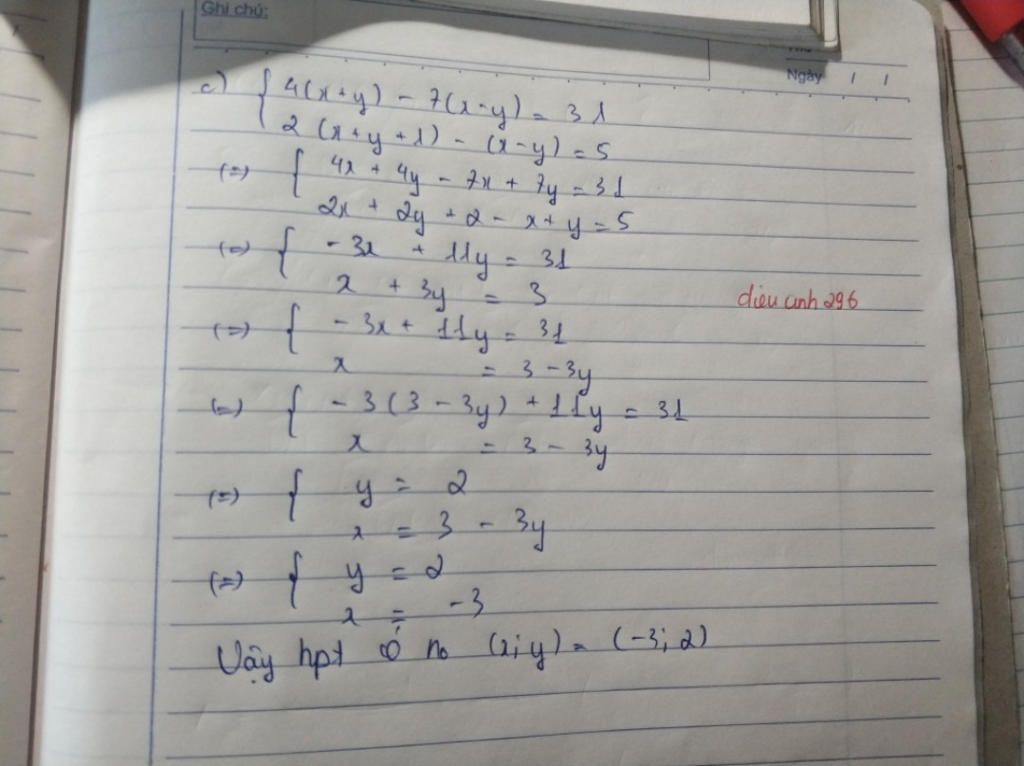 Ghi chú:
Ngày / /
c) { 4(x+y) - 7(x-y) = 31
2(x+y+1) - (x-y) = 5
(=) { 4x + 4y - 7x + 7y = 31
2x + 2y + 2 - x + y = 5
(=) { -3x + 11y = 31
x + 3y = 3
diệu anh 296
(=) { -3x + 11y = 31
x = 3 - 3y
(=) { -3(3 - 3y) + 11y = 31
x = 3 - 3y
(=) { y = 2
x = 3 - 3y
(=) { y = 2
x = -3
Vậy hpt có no (x;y) = (-3;2)